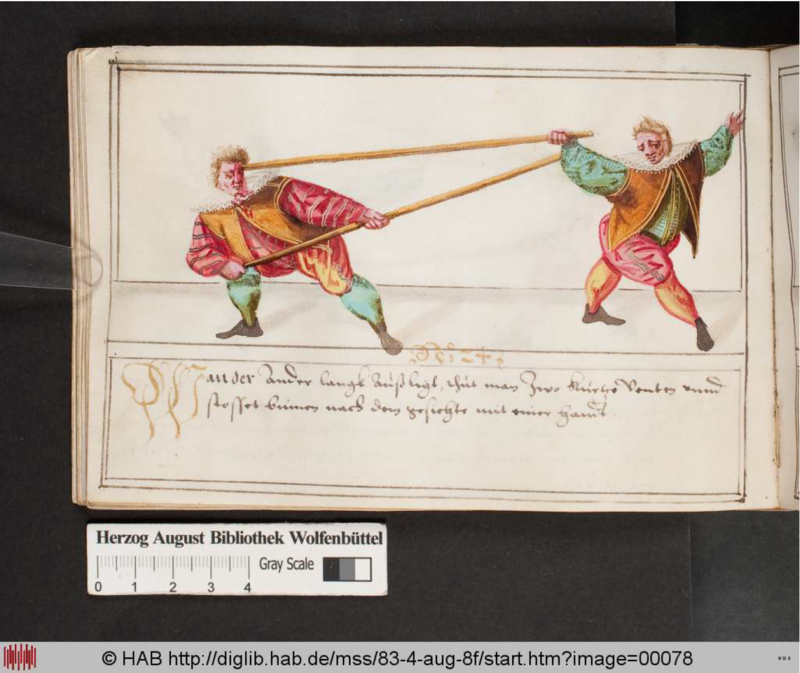 No: 24:
Wan der Ander langk außligt, thut man Zwo kurtze Venten vnnd
stosset binnen nach dem gesichte mit einer handt.
Herzog August Bibliothek Wolfenbüttel
Gray Scale
0 1 2 3 4
© HAB http://diglib.hab.de/mss/83-4-aug-8f/start.htm?image=00078